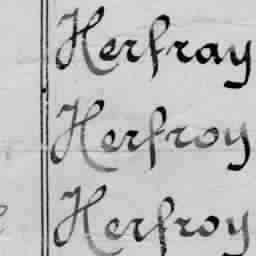 Herfray
Herfroy
Herfroy